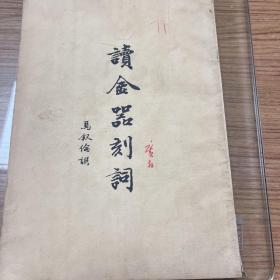 讀金器刻詞
馬叙倫譔